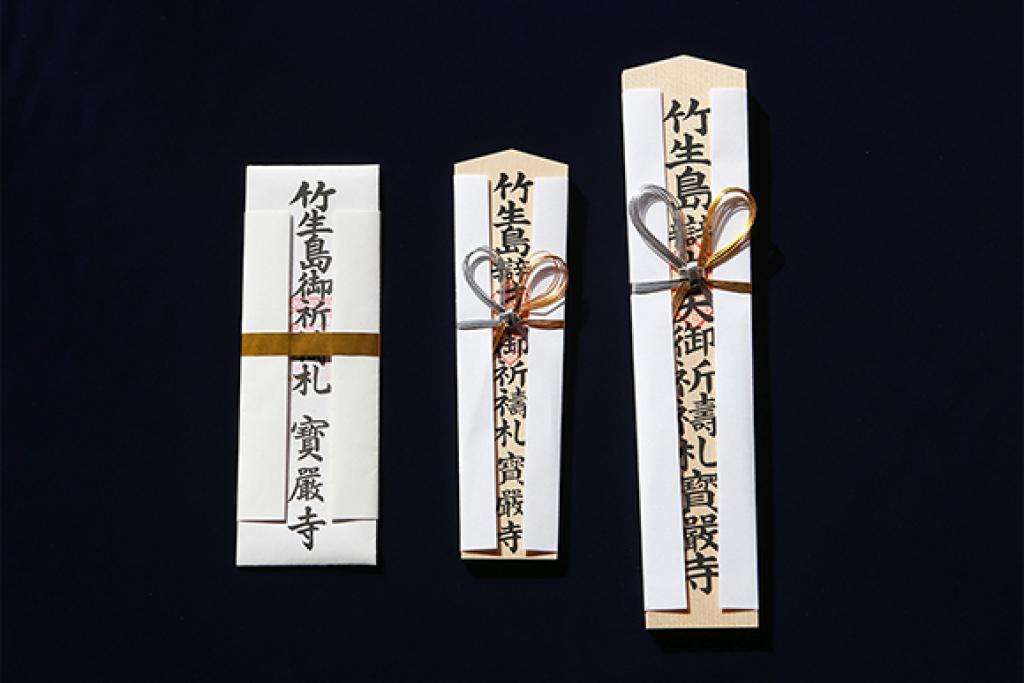 竹生島御祈禱札 寶嚴寺
竹生島辯才御祈禱札寶嚴寺
竹生島辯才天御祈禱札寶嚴寺